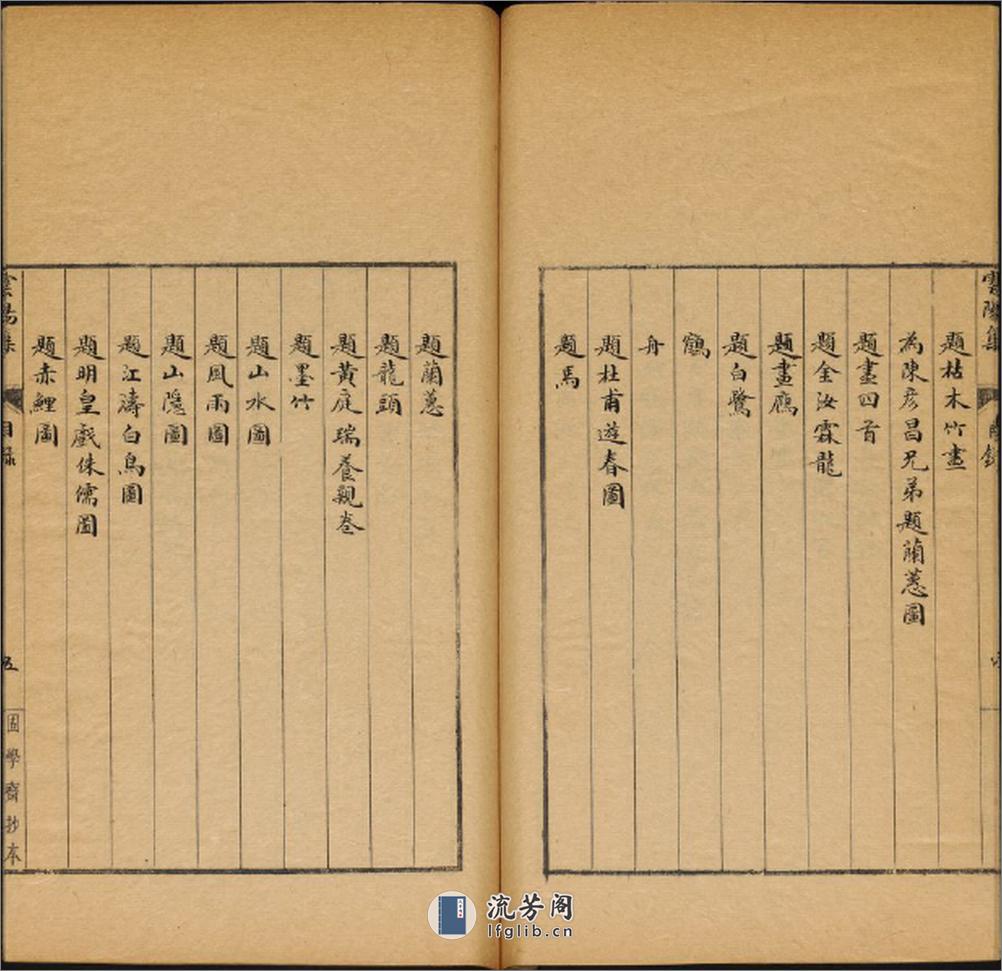 雲陽集
目錄
題枯木竹畫
為陳彥昌兄弟題蘭蕙圖
題畫四首
題全汝霖龍
題畫鷹
題白鷺
鶴
舟
題杜甫遊春圖
題馬
題蘭蕙
題龍頭
題黃庭瑞養親卷
題墨竹
題山水圖
題風雨圖
題山隱圖
題江濤白鳥圖
題明皇戲侏儒圖
題赤鯉圖
雲陽集
目錄
五
困學齋抄本
流芳阁
lfglib.cn